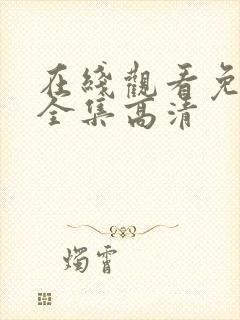 在綫觀看免
全集高清
燭霄